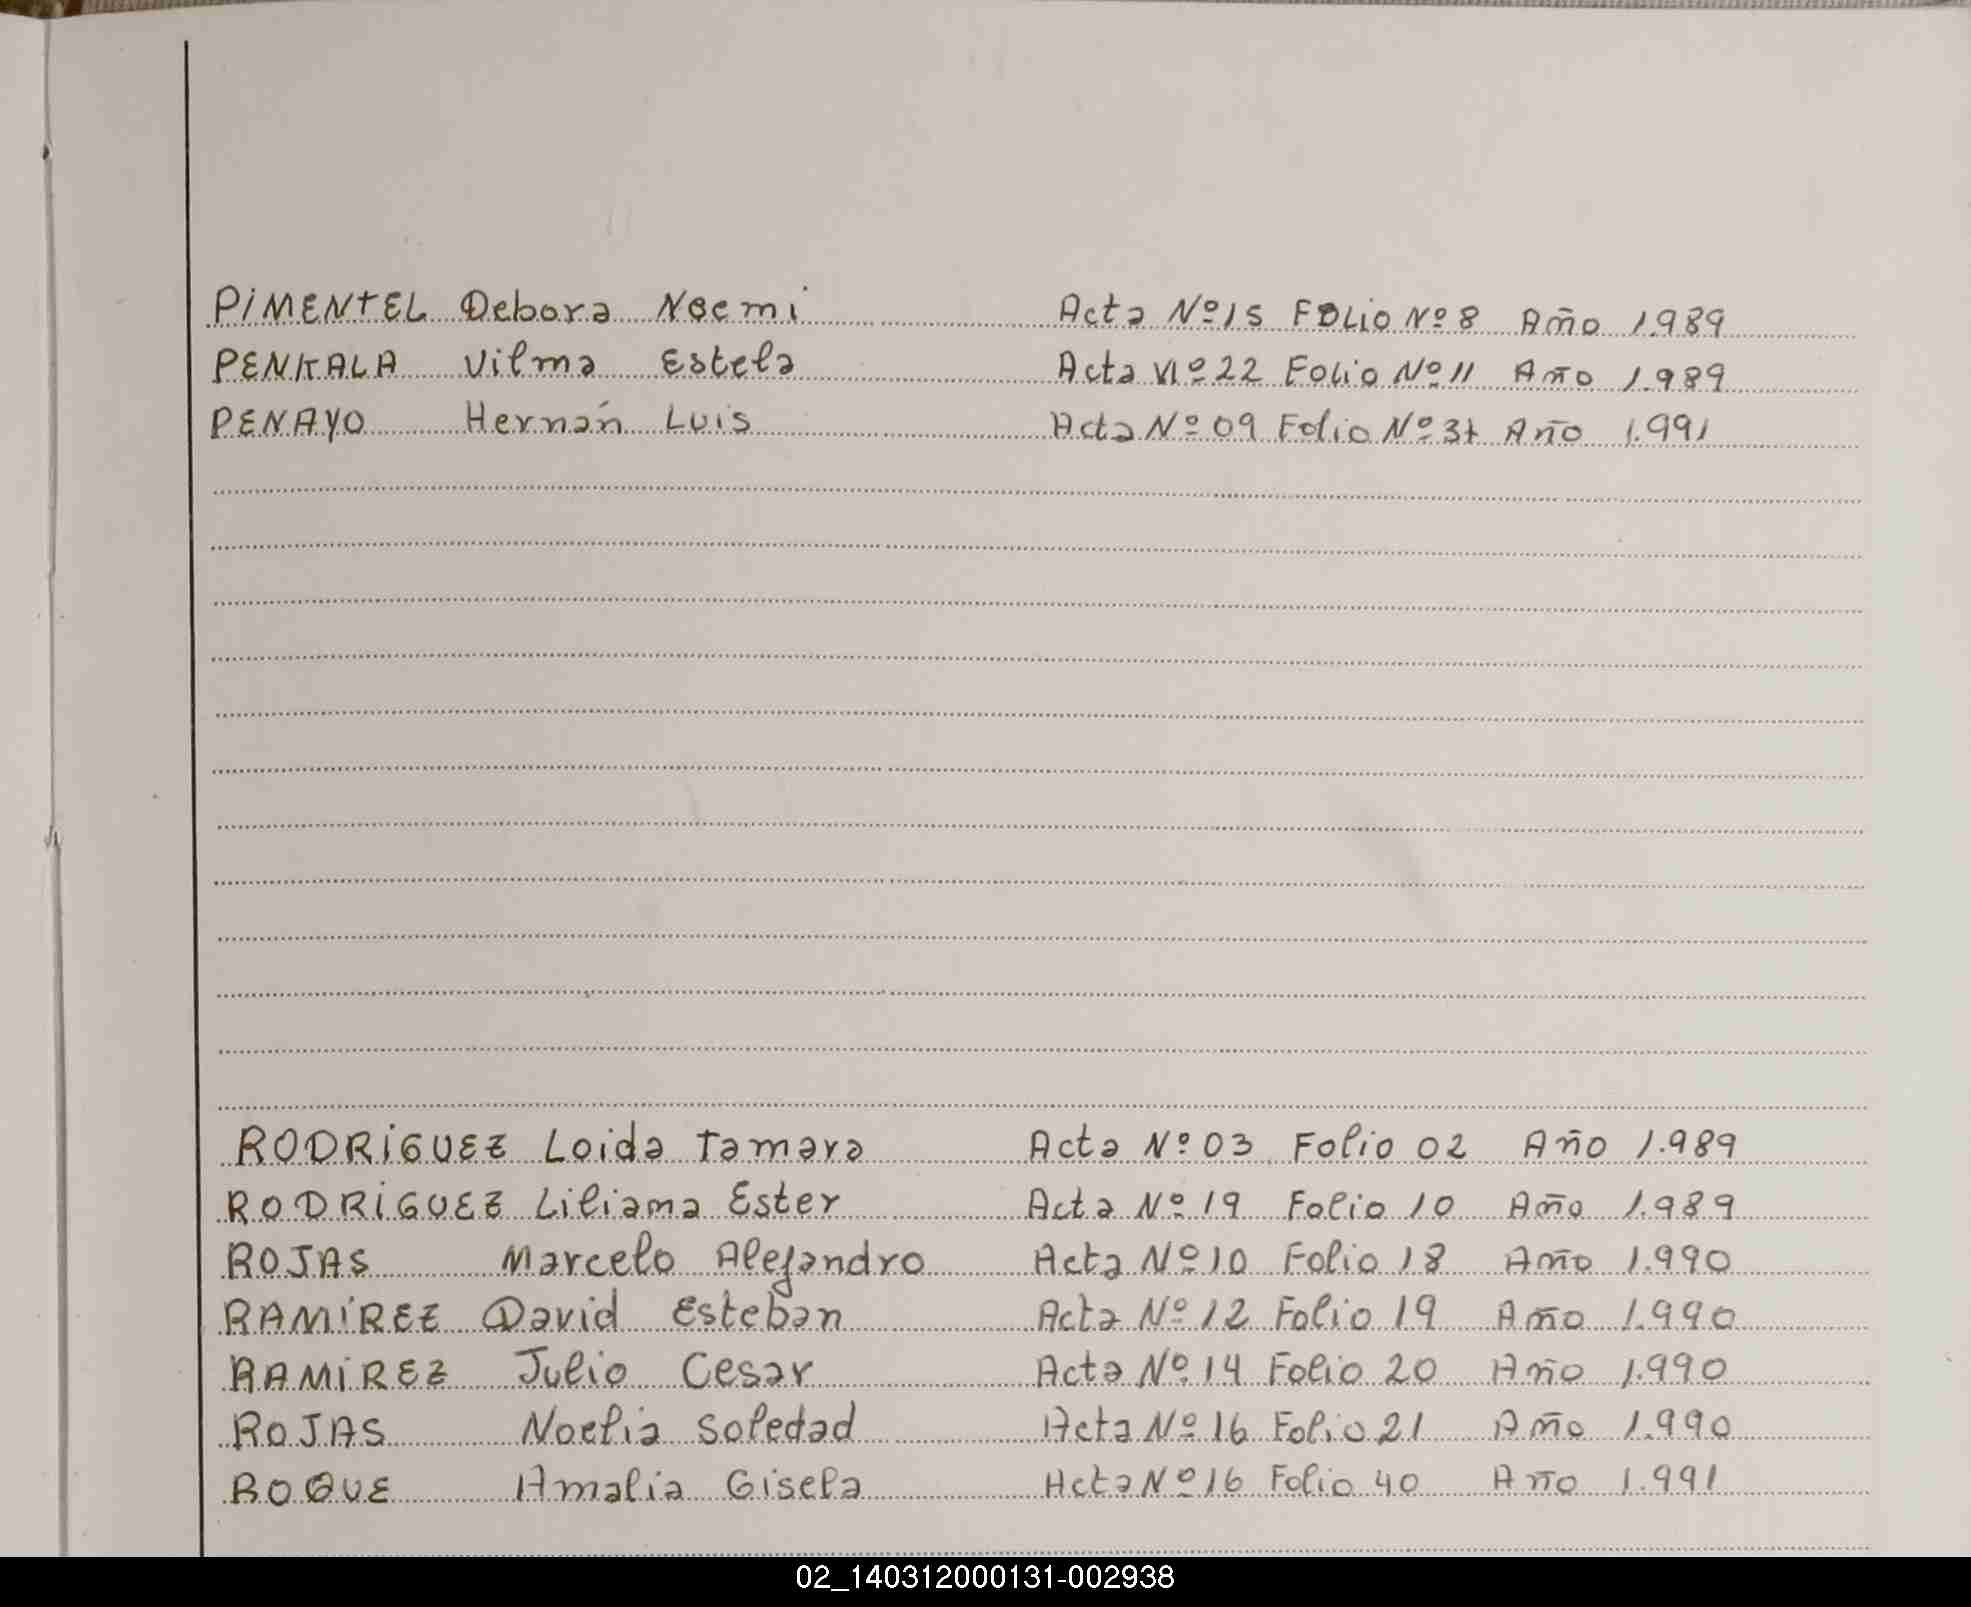 PIMENTEL Debora Noemi Acta Nº 15 FOLIO Nº 8 Año 1.989
Vilma Estela Acta Nº 22 Folio Nº 11 Año 1.989
PENAYO Hernán Luis Acta Nº 09 Folio Nº Año 1.991
RODRIGUEZ Loida Tamara Acta Nº 03 Folio 02 Año 1.989
RODRIGUEZ Liliana Ester Acta Nº 19 Folio 10 Año 1.989
ROJAS Marcelo Alejandro Acta Nº 10 Folio 18 Año 1.990
RAMÍREZ David Esteban Acta Nº 12 Folio 19 Año 1.990
RAMIREZ Julio Cesar Acta Nº 14 Folio 20 Año 1.990
ROJAS Noelia Soledad Acta Nº 16 Folio 21 Año 1.990
ROQUE Amalia Gisela Acta Nº 16 Folio 40 Año 1.991
02_140312000131-002938